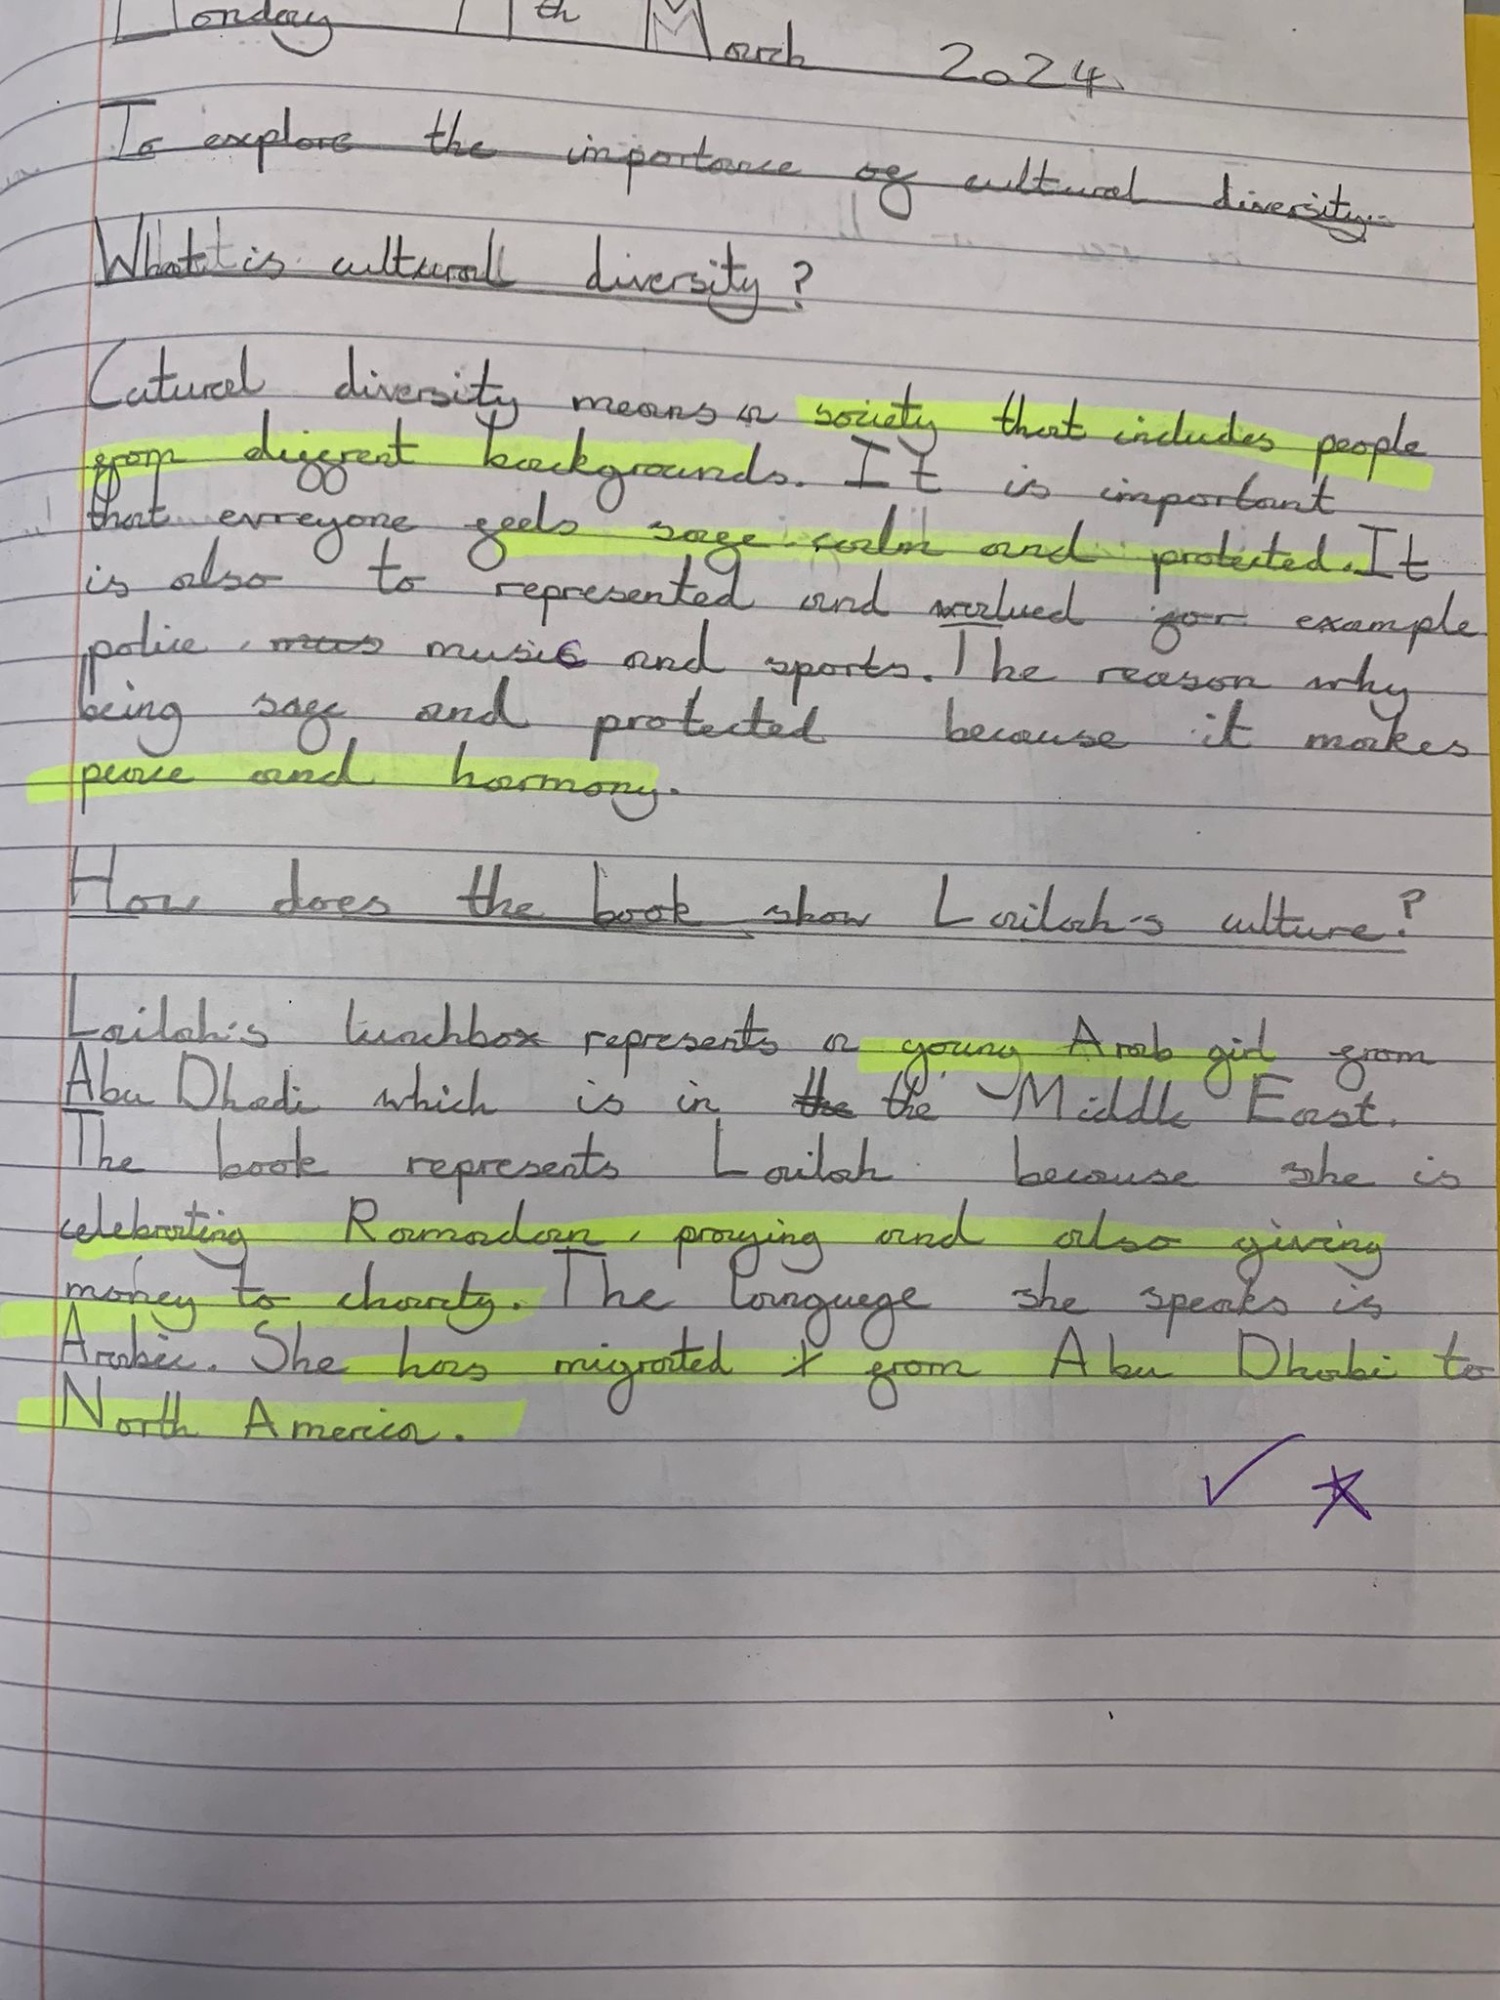 Monday 11th March 2024
To explore the importance of cultural diversity.
What is cultural diversity?
Catural diversity means a society that includes people
from diffrent backgrounds. It is important
that evreyone feels safe calm and protected. It
is also to represented and valued for example
police, music and sports. The reason why
being safe and protected because it makes
peace and harmony.
How does the book show Lailah's culture?
Lailah's lunchbox represents a young Arab girl from
Abu Dhadi which is in the the Middle East.
The book represents Lailah because she is
celebrating Ramadan, praying and also giving
money to charity. The languege she speaks is
Arabic. She has migrated from Abu Dhabi to
North America.